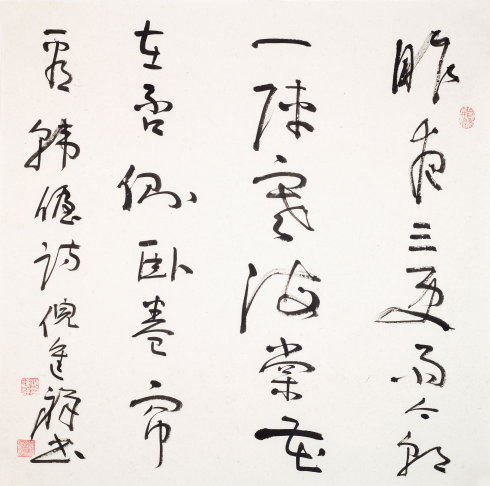 昨夜三更雨今朝
一阵寒海棠花
在否侧卧卷帘
看韩偓诗倪進祥书